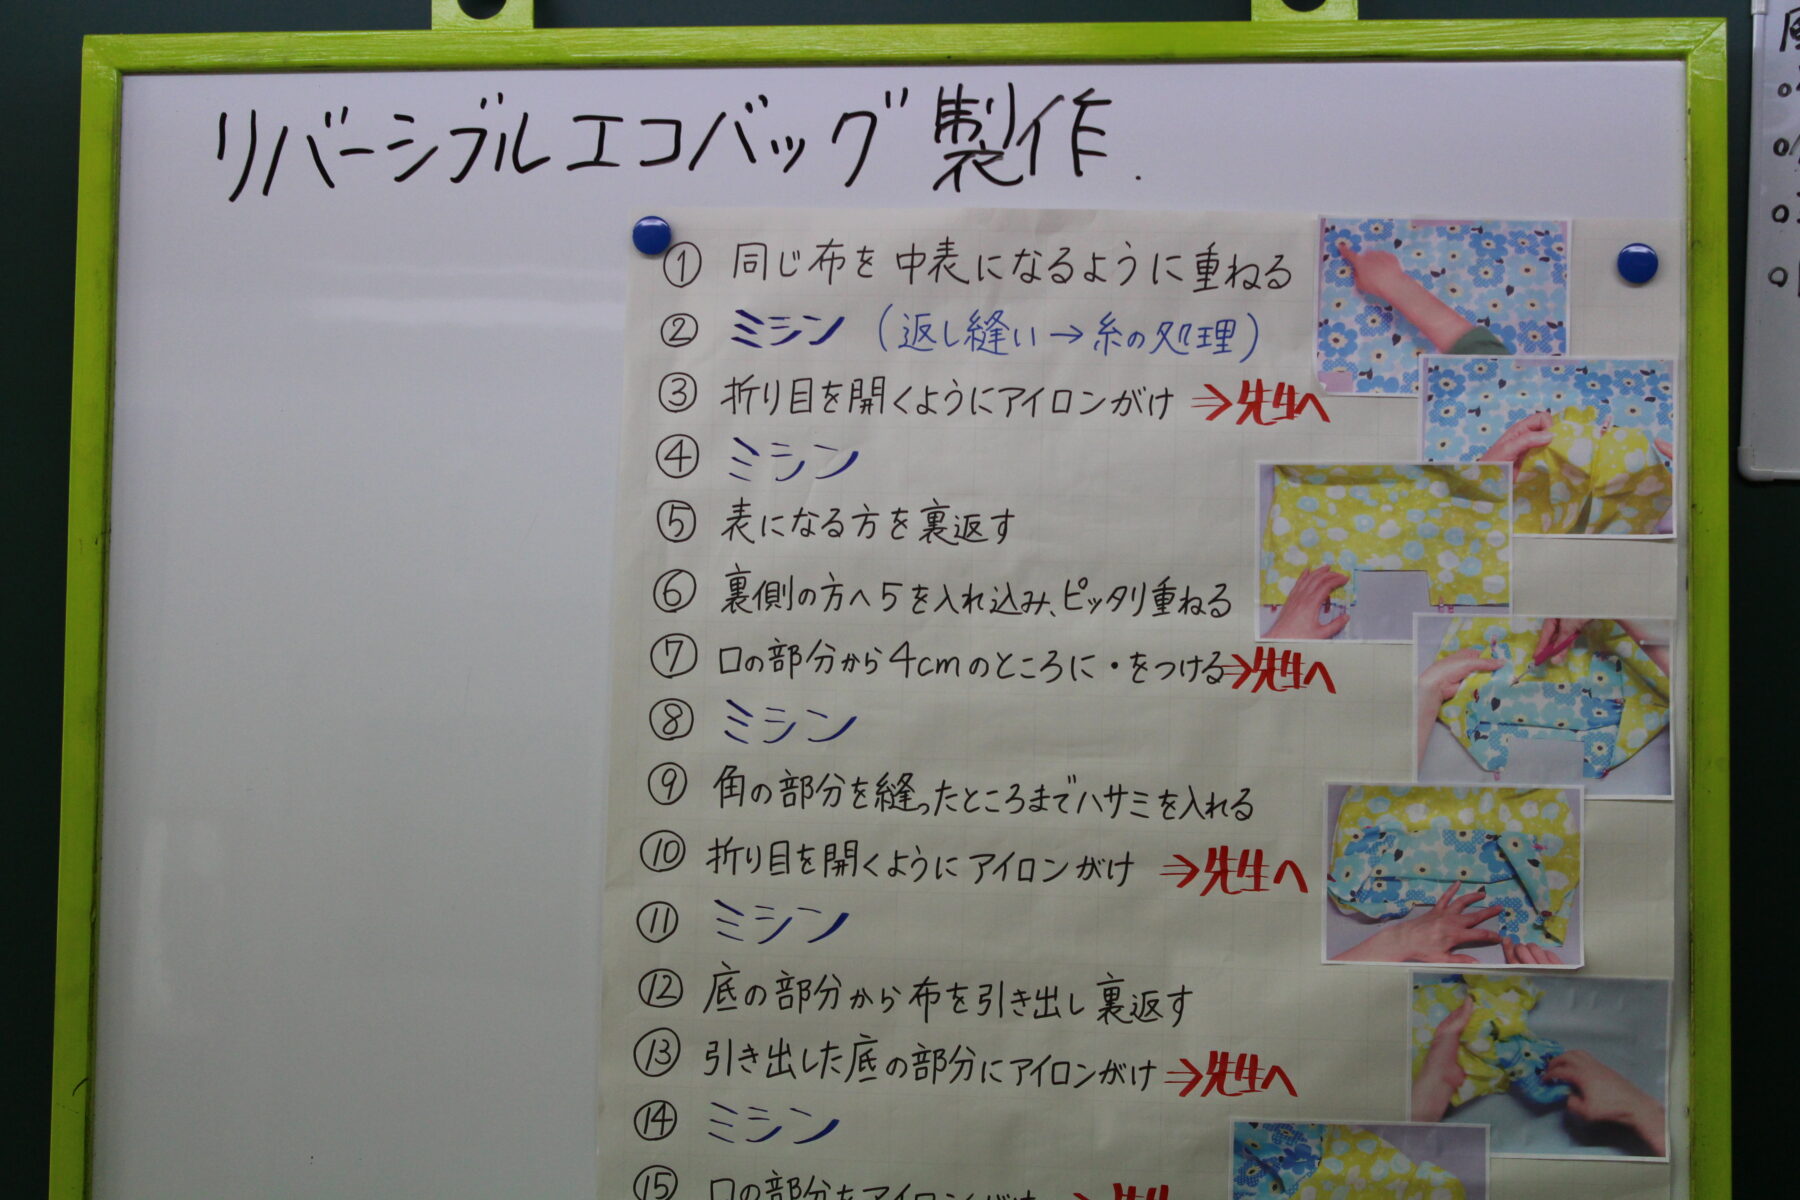 リバーシブルエコバッグ製作.
① 同じ布を中表になるように重ねる
② ミシン (返し縫い→糸の処理)
③ 折り目を開くようにアイロンがけ ⇒先生へ
④ ミシン
⑤ 表になる方を裏返す
⑥ 裏側の方へ5を入れ込み、ピッタリ重ねる
⑦ 口の部分から4cmのところに・をつける⇒先生へ
⑧ ミシン
⑨ 角の部分を縫ったところまでハサミを入れる
⑩ 折り目を開くようにアイロンがけ ⇒先生へ
⑪ ミシン
⑫ 底の部分から布を引き出し裏返す
⑬ 引き出した底の部分にアイロンがけ⇒先生へ
⑭ ミシン
⑮ 口の部分をアイロンがけ